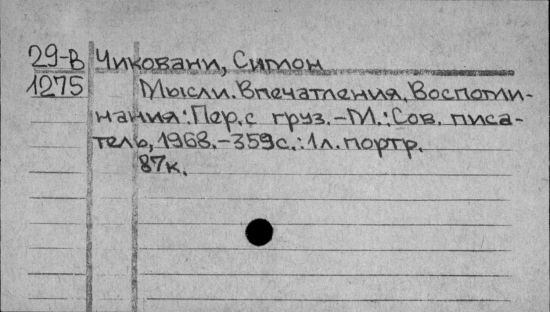 29-В Чиковани, Симон
1275 Мысли. Впечатления. Воспоми-
нания: Пер. с груз. - М.: Сов. писа-
тель, 1968. - 359 с.: 1 л. портр.
87к.